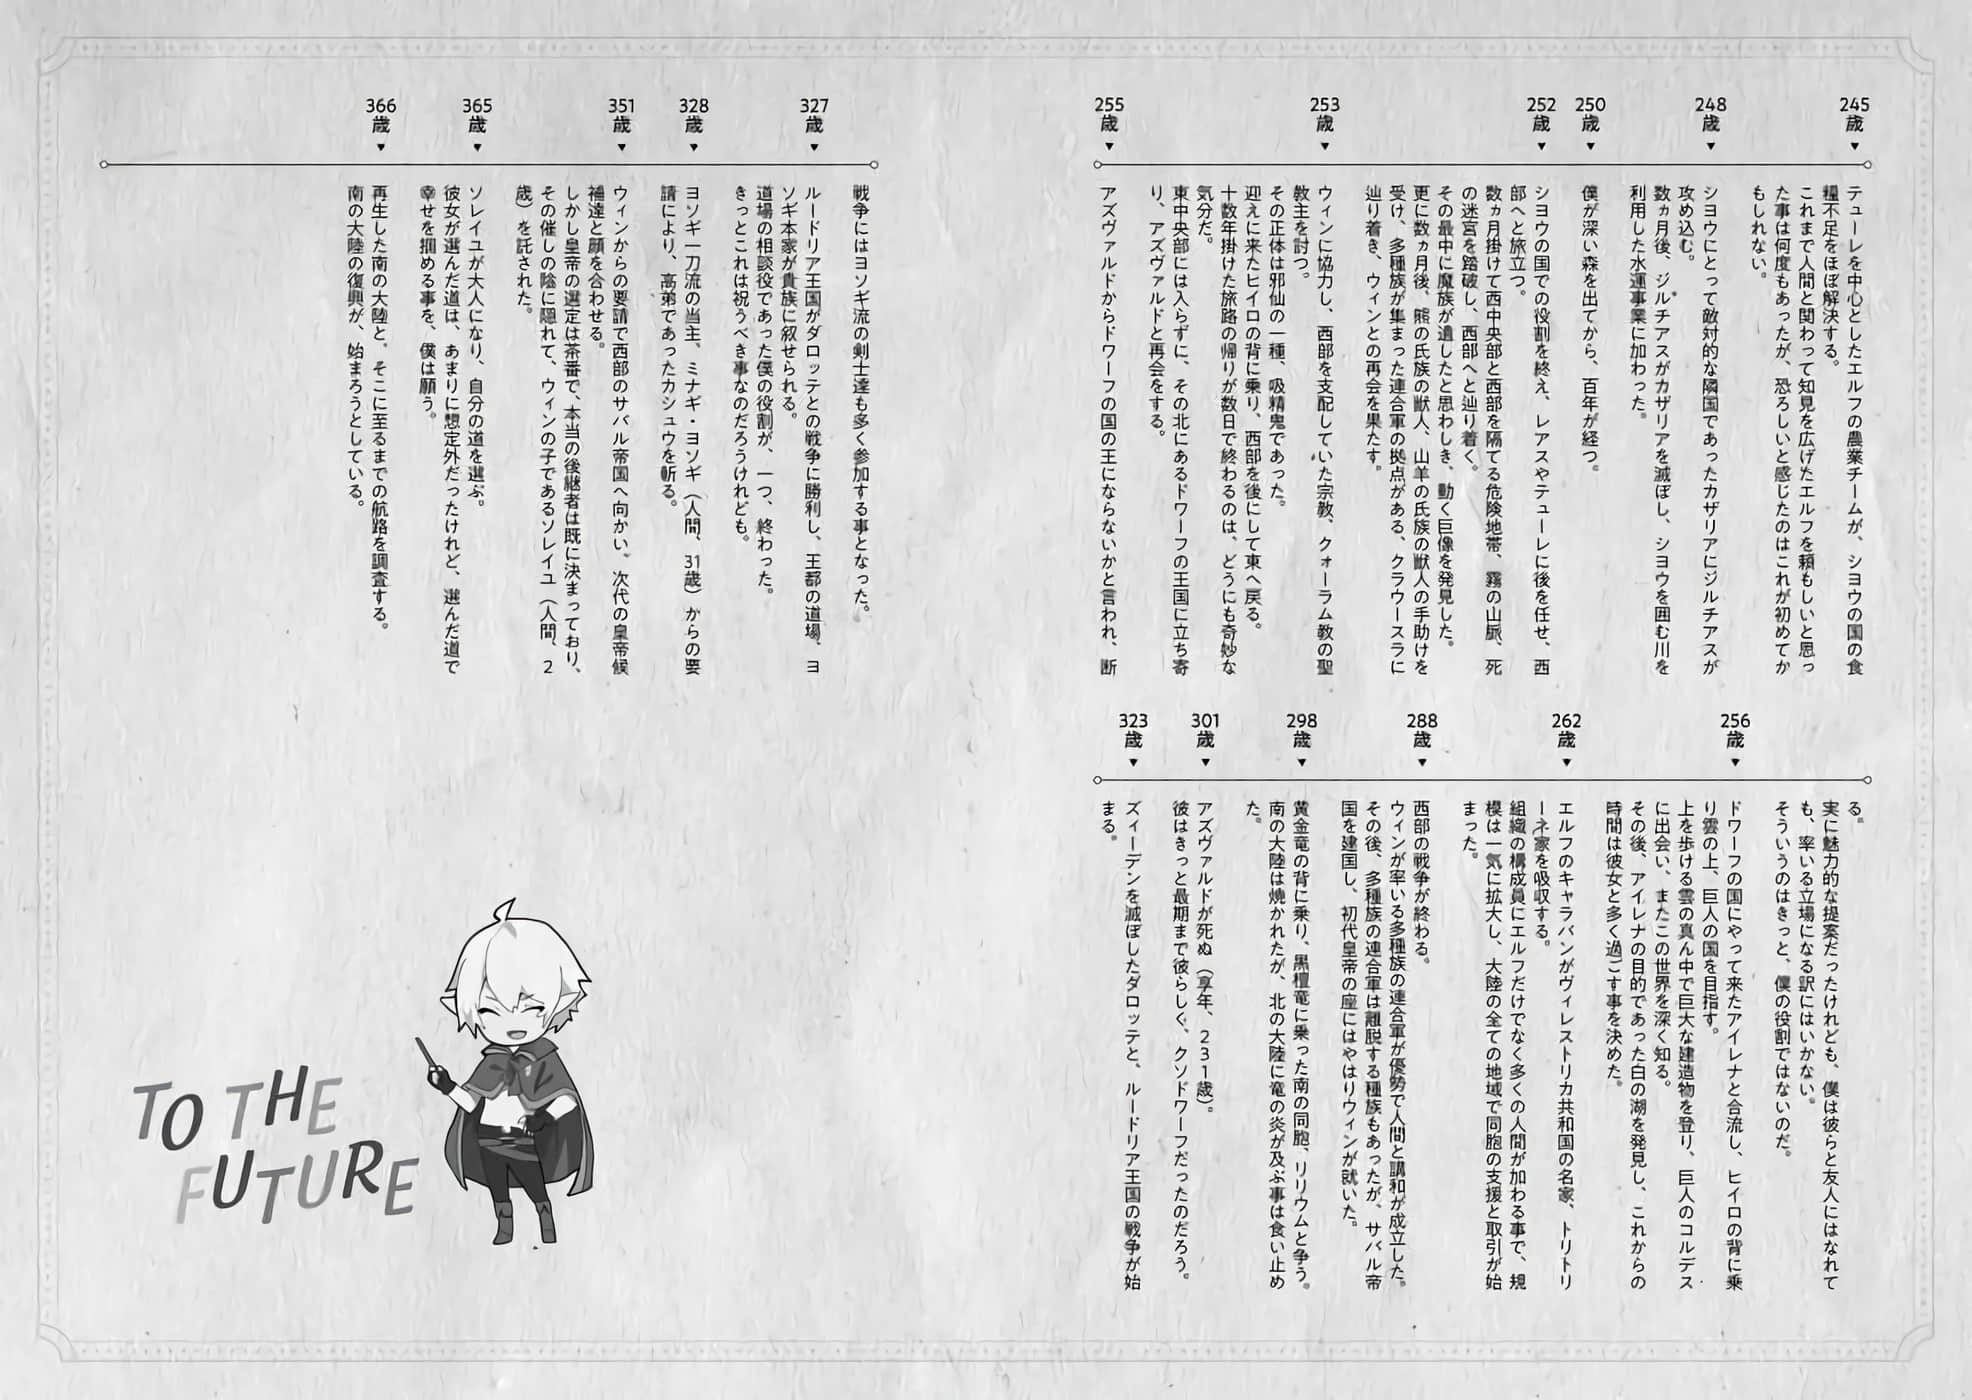 245歳▼
テューレを中心としたエルフの農業チームが、シヨウの国の食
糧不足をほぼ解決する。
これまで人間と関わって知見を広げたエルフを頼もしいと思っ
た事は何度もあったが、恐ろしいと感じたのはこれが初めてか
もしれない。
248歳▼
シヨウにとって敵対的な隣国であったカザリアにジルチアスが
攻め込む。
数ヵ月後、ジルチアスがカザリアを滅ぼし、シヨウを囲む川を
利用した水運事業に加わった。
250歳▼
僕が深い森を出てから、百年が経つ。
252歳▼
シヨウの国での役割を終え、レアスやテューレに後を任せ、西
部へと旅立つ。
数ヵ月掛けて西中央部と西部を隔てる危険地帯、霧の山脈、死
の迷宮を踏破し、西部へと辿り着く。
その最中に魔族が遺したと思わしき、動く巨像を発見した。
更に数ヵ月後、熊の氏族の獣人、山羊の氏族の獣人の手助けを
受け、多種族が集まった連合軍の拠点がある、クラウースラに
辿り着き、ウィンとの再会を果たす。
253歳▼
ウィンに協力し、西部を支配していた宗教、クォーラム教の聖
教主を討つ。
その正体は邪仙の一種、吸精鬼であった。
迎えに来たヒイロの背に乗り、西部を後にして東へ戻る。
十数年掛けた旅路の帰りが数日で終わるのは、どうにも奇妙な
気分だ。
東中央部には入らずに、その北にあるドワーフの王国に立ち寄
り、アズヴァルドと再会をする。
255歳▼
アズヴァルドからドワーフの国の王にならないかと言われ、断
る。
実に魅力的な提案だったけれども、僕は彼らと友人にはなれて
も、率いる立場になる訳にはいかない。
そういうのはきっと、僕の役割ではないのだ。
256歳▼
ドワーフの国にやって来たアイレナと合流し、ヒイロの背に乗
り雲の上、巨人の国を目指す。
上を歩ける雲の真ん中で巨大な建造物を登り、巨人のコルデス
に出会い、またこの世界を深く知る。
その後、アイレナの目的であった白の湖を発見し、これからの
時間は彼女と多く過ごす事を決めた。
262歳▼
エルフのキャラバンがヴィレストリカ共和国の名家、トリトリ
ーネ家を吸収する。
組織の構成員にエルフだけでなく多くの人間が加わる事で、規
模は一気に拡大し、大陸の全ての地域で同胞の支援と取引が始
まった。
288歳▼
西部の戦争が終わる。
ウィンが率いる多種族の連合軍が優勢で人間と講和が成立した。
その後、多種族の連合軍は離脱する種族もあったが、サバル帝
国を建国し、初代皇帝の座にはやはりウィンが就いた。
298歳▼
黄金竜の背に乗り、黒檀竜に乗った南の同胞、リリウムと争う。
南の大陸は焼かれたが、北の大陸に竜の炎が及ぶ事は食い止め
た。
301歳▼
アズヴァルドが死ぬ（享年、231歳）。
彼はきっと最期まで彼らしく、クソドワーフだったのだろう。
323歳▼
ズィーデンを滅ぼしたダロッテと、ルードリア王国の戦争が始
まる。
戦争にはヨソギ流の剣士達も多く参加する事となった。
327歳▼
ルードリア王国がダロッテとの戦争に勝利し、王都の道場、ヨ
ソギ本家が貴族に叙せられる。
道場の相談役であった僕の役割が、一つ、終わった。
きっとこれは祝うべき事なのだろうけれども。
328歳▼
ヨソギ一刀流の当主、ミナギ・ヨソギ（人間、31歳）からの要
請により、高弟であったカシュウを斬る。
351歳▼
ウィンからの要請で西部のサバル帝国へ向かい、次代の皇帝候
補達と顔を合わせる。
しかし皇帝の選定は茶番で、本当の後継者は既に決まっており、
その催しの陰に隠れて、ウィンの子であるソレイユ（人間、2
歳）を託された。
365歳▼
ソレイユが大人になり、自分の道を選ぶ。
彼女が選んだ道は、あまりに想定外だったけれど、選んだ道で
幸せを掴める事を、僕は願う。
366歳▼
再生した南の大陸と、そこに至るまでの航路を調査する。
南の大陸の復興が、始まろうとしている。
TO THE
FUTURE